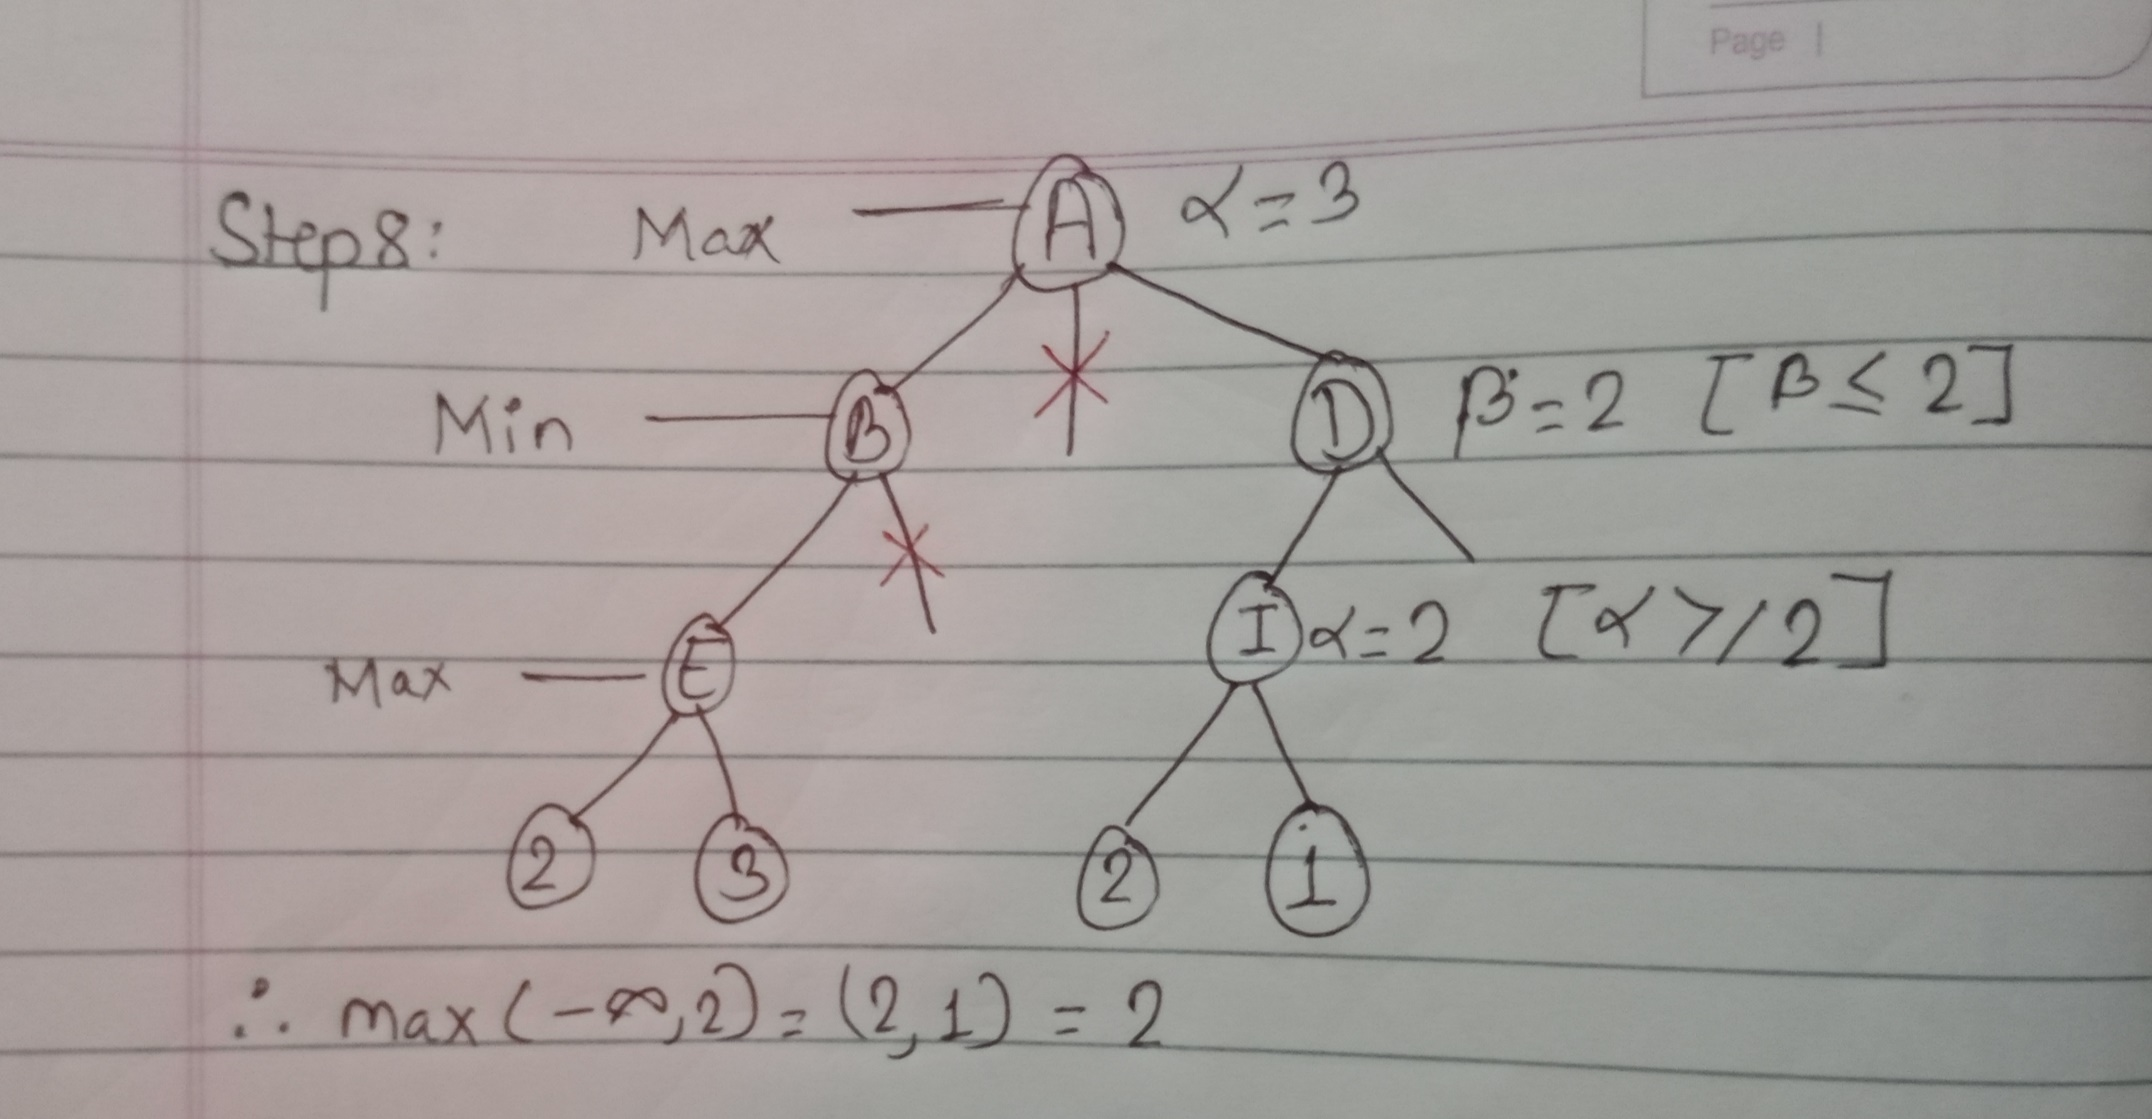 Page
Step8: Max A α=3
Min B D β=2 [β≤2]
Max E I α=2 [α>/2]
2 3 2 1
∴ max(-∞,2)=(2,1)=2